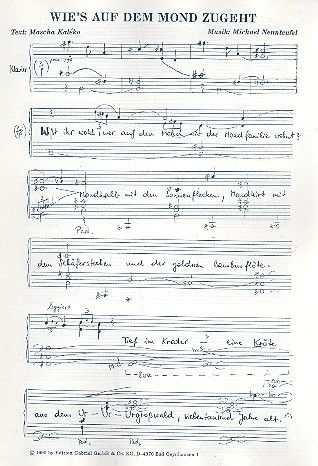 WIE'S AUF DEM MOND ZUGEHT
Text: Mascha Kaléko Musik: Michael Nennteufel
Klavier
Wißt ihr wohl, wer auf dem Monde mit der Mondfamilie wohnt?
Mondkalb mit den Sonnenflecken, Mondhirt mit
Ped.
dem Schäferstecken und der goldnen Bambusflöte.
leggiero
Tief im Krater eine Kröte
8va
aus dem Ur-Ur-Urgießwald, siebentausend Jahre alt.
Ped. Ped.
© 1990 by Edition Gabriel GmbH & Co. KG, D-4970 Bad Oeynhausen 1